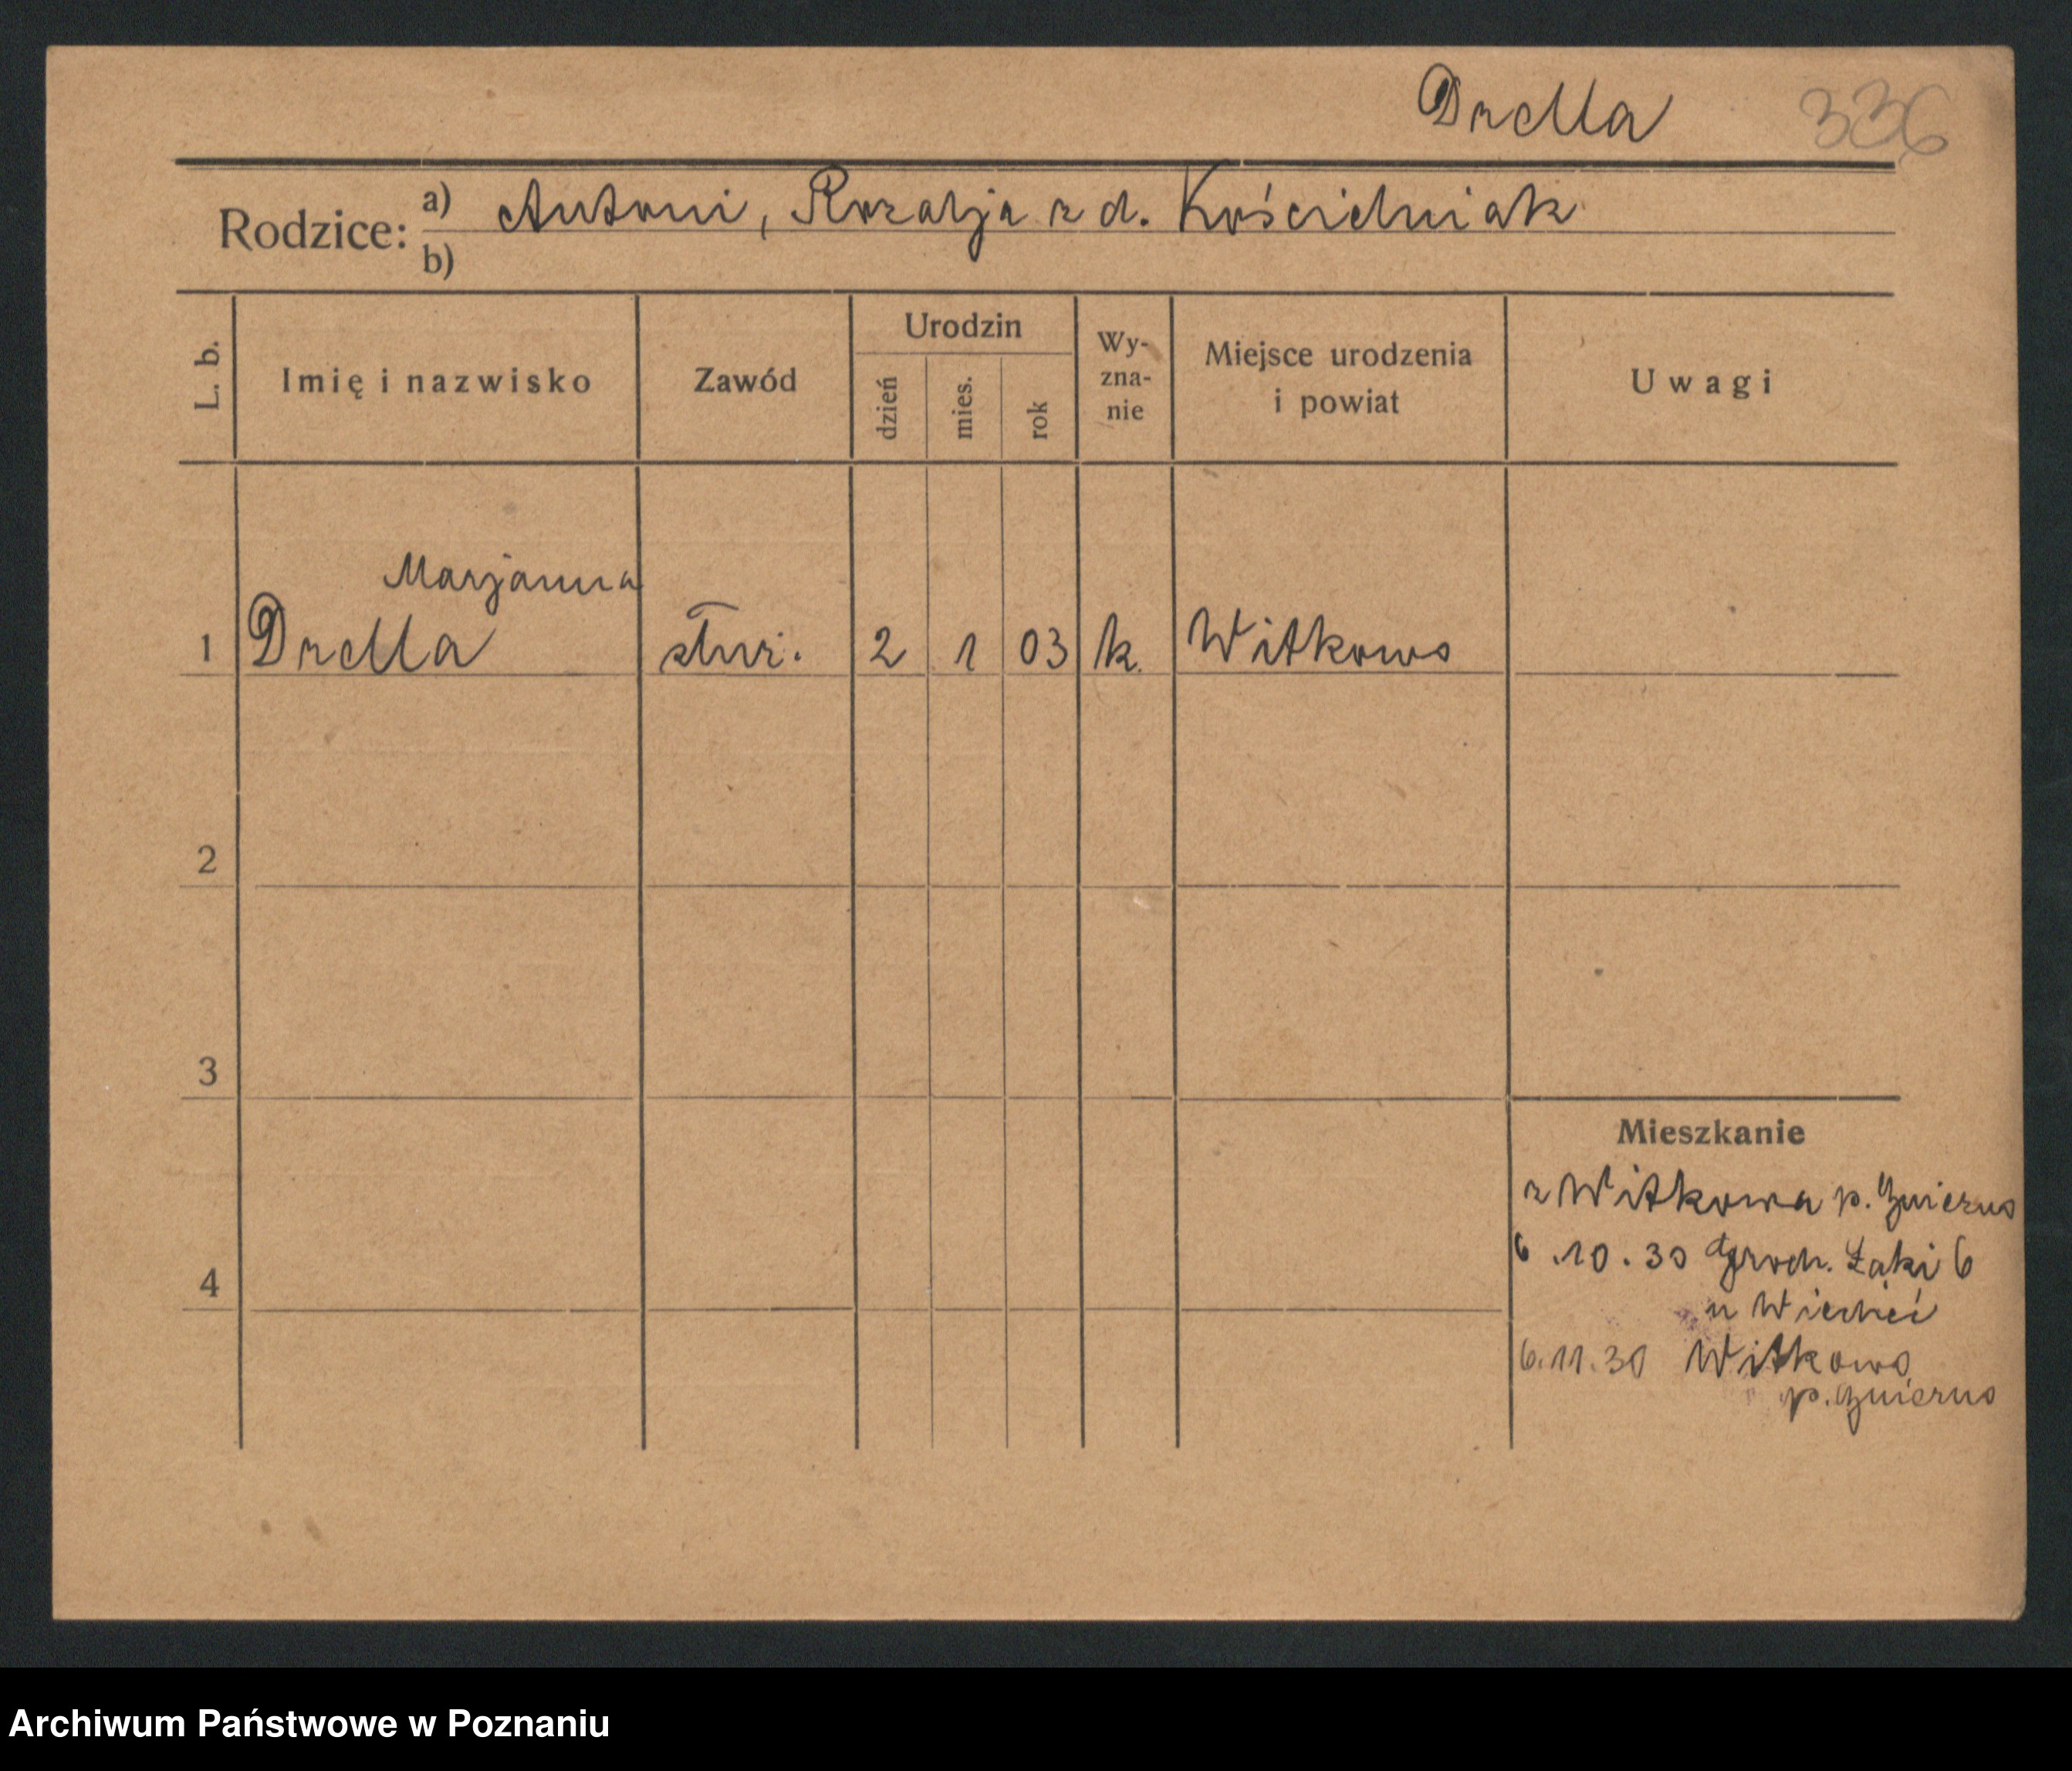 Drella 336
Rodzice: a) Antoni, Rozalja z d. Kościelniak
b)
L. b. Imię i nazwisko Zawód Urodzin dzień mies. rok Wy-zna-nie Miejsce urodzenia i powiat Uwagi
Marjanna
1 Drella służ. 2 1 03 k. Witkowo
2
3
Mieszkanie
z Witkowa p. Gniezno
6.10.30 Groch. Łąki 6
4
u Wiecheć
6.11.30 Witkowo
p. Gniezno
Archiwum Państwowe w Poznaniu